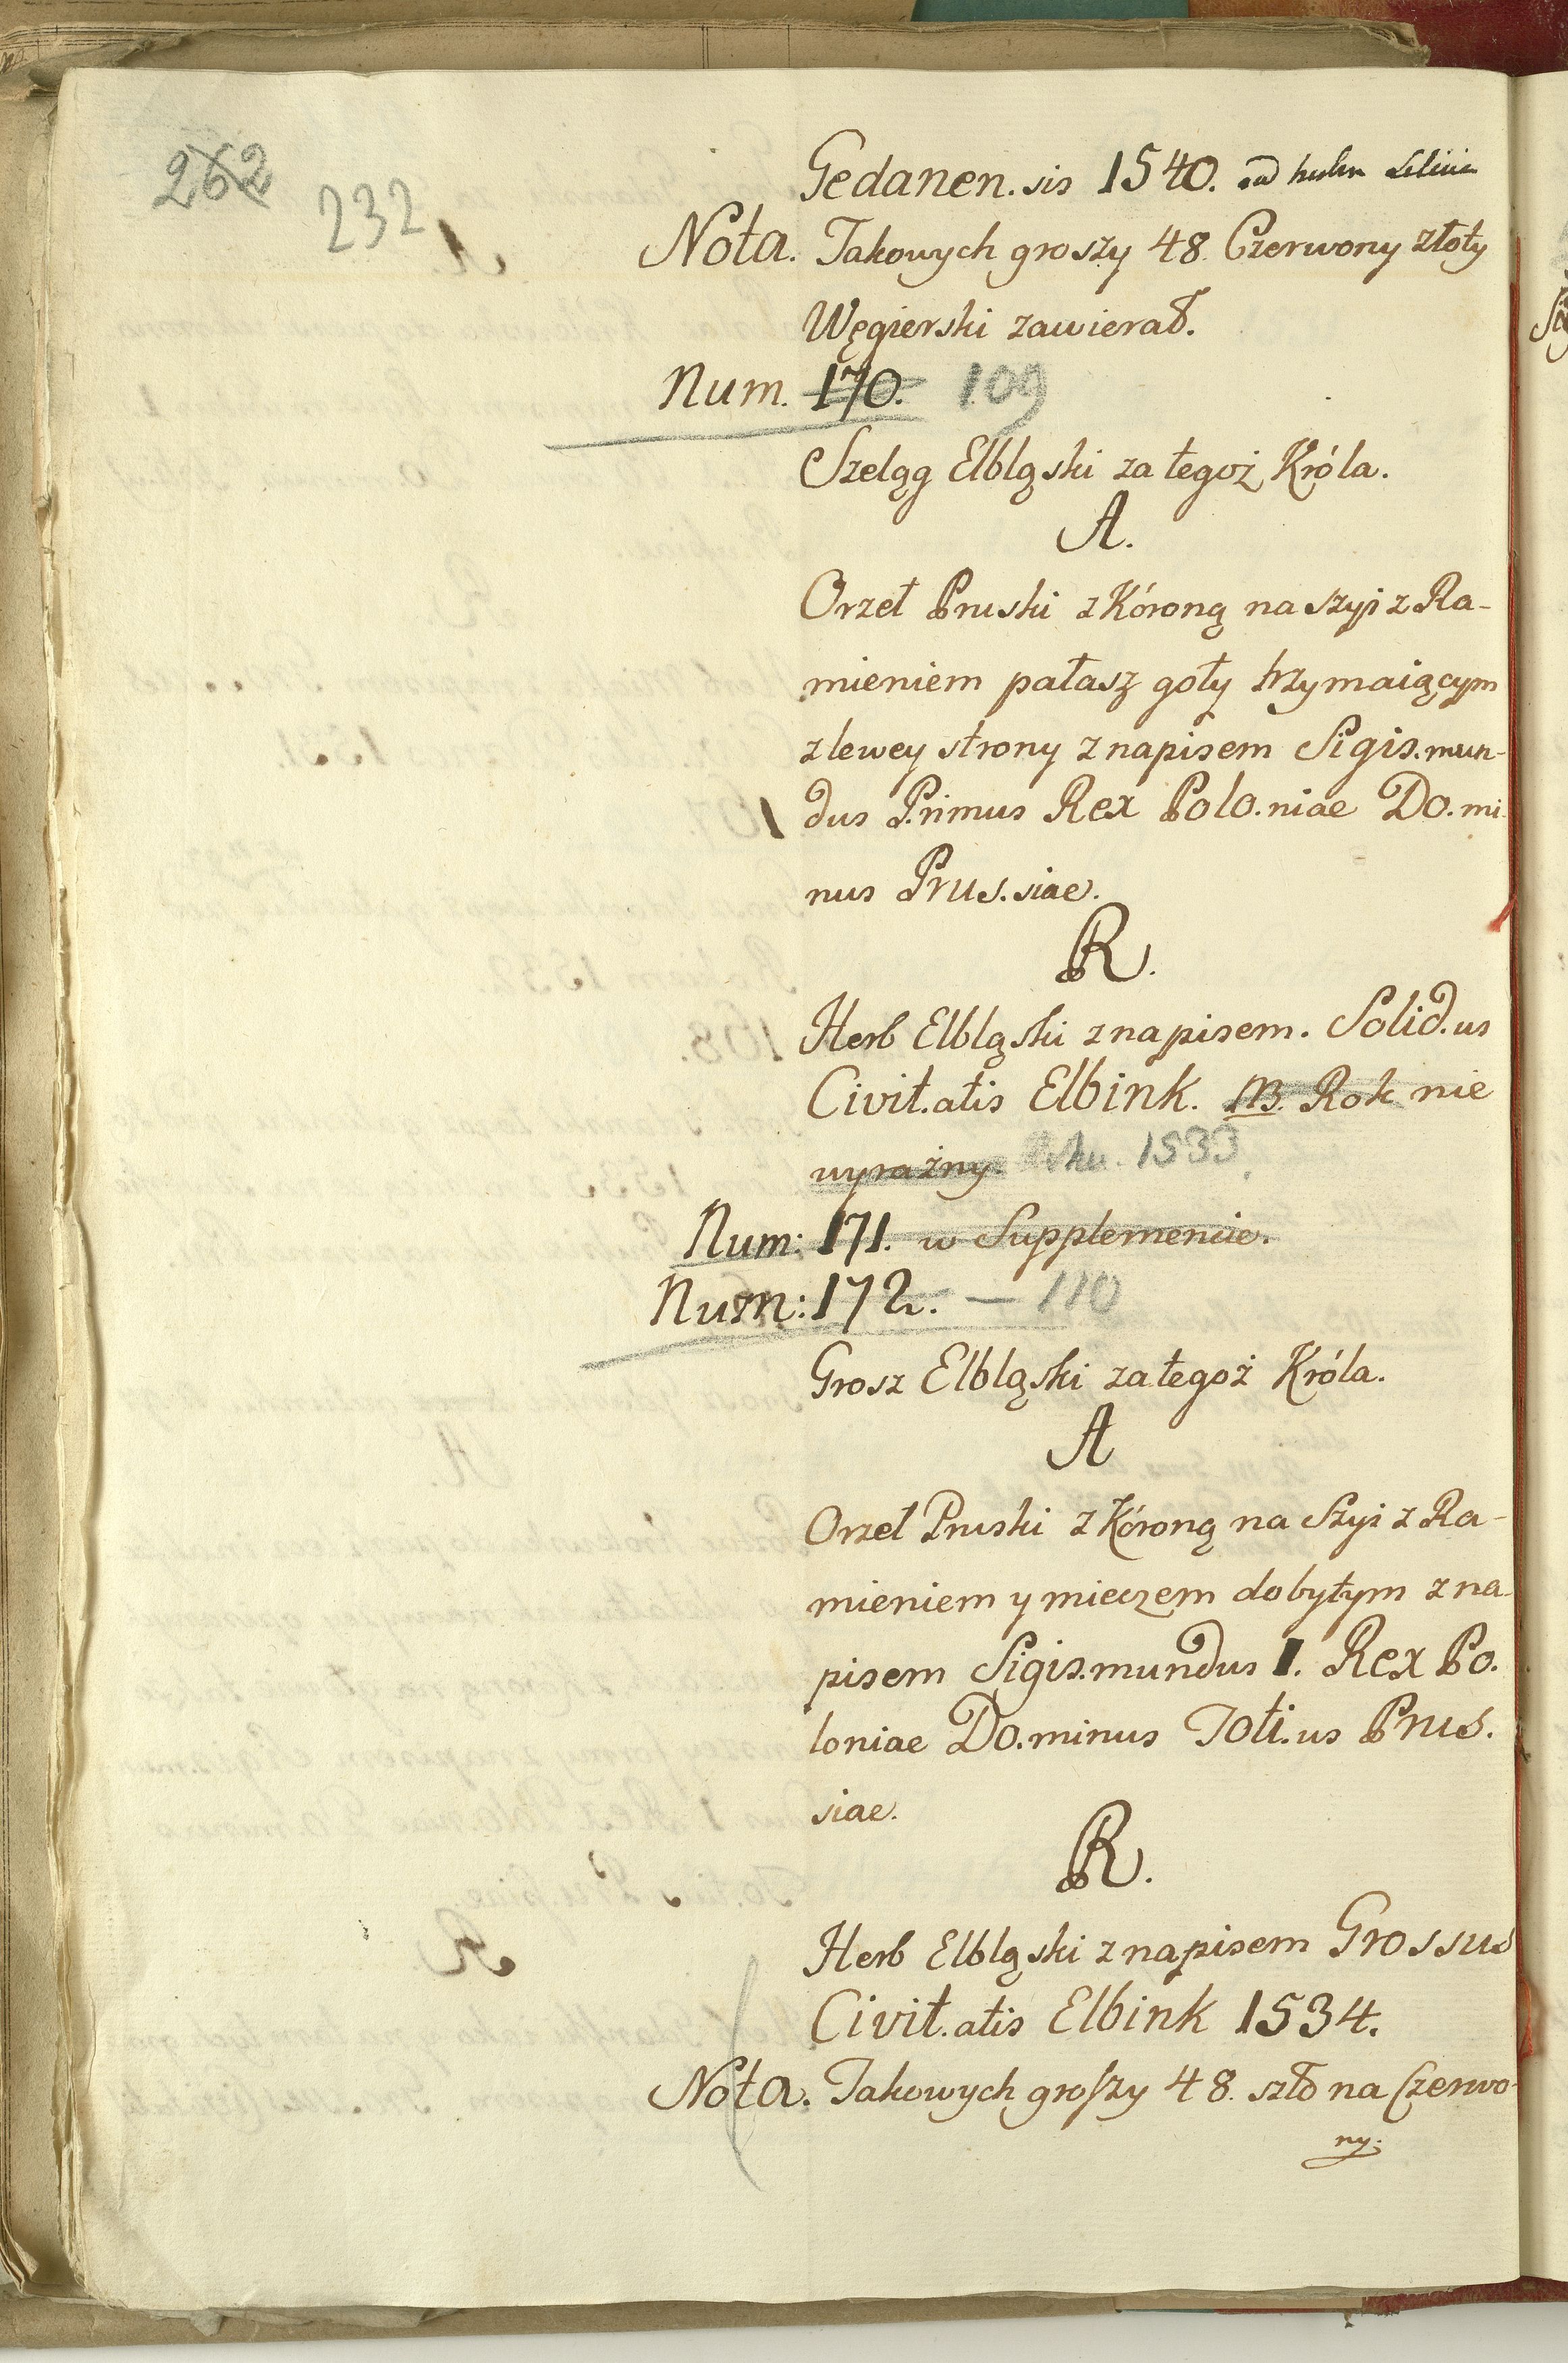 262
232
Gedanen.sis 1540.
Nota. Takowych groszy 48. Czerwony złoty
Węgierski zawierał.
Num. 170. 109
Szeląg Elbląski za tegoż Króla.
A.
Orzeł Pruski z Kóroną na szyi z Ra-
mieniem pałasz goły trzymaiącym
z lewey strony z napisem Sigis.mun-
dus Primus Rex Polo.niae Do.mi-
nus Prus.siae.
R.
Herb Elbląski z napisem. Solid.us
Civit.atis Elbink. Rok nie
wyraźny. Roku. 1533.
Num: 171. w Supplemencie.
Num: 172. — 110
Grosz Elbląski za tegoż Króla.
A
Orzeł Pruski z Kóroną na Szyi z Ra-
mieniem y mieczem dobytym z na-
pisem Sigis.mundus I. Rex Po.
loniae Do.minus Toti.us Prus.
siae.
R.
Herb Elbląski z napisem Grossus
Civit.atis Elbink 1534.
Nota. Takowych groszy 48. szło na Czerwo-
ny.